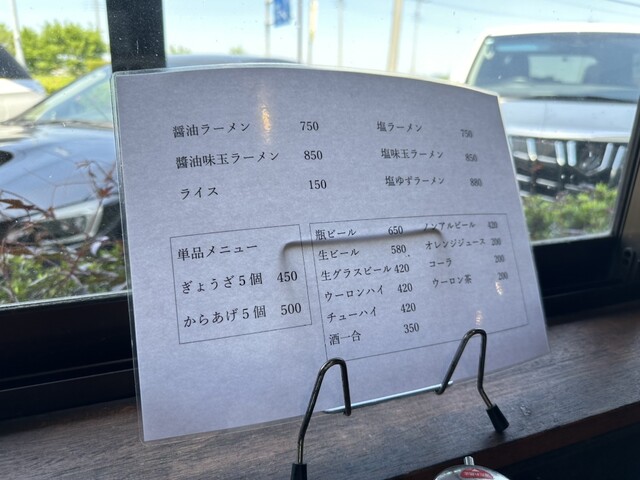 醤油ラーメン 750
醬油味玉ラーメン 850
ライス 150
塩ラーメン 750
塩味玉ラーメン 850
塩ゆずラーメン 880
単品メニュー
ぎょうざ5個 450
からあげ5個 500
瓶ビール 650
生ビール 580
生グラスビール 420
ウーロンハイ 420
チューハイ 420
酒一合 350
ノンアルビール 420
オレンジジュース 200
コーラ 200
ウーロン茶 200